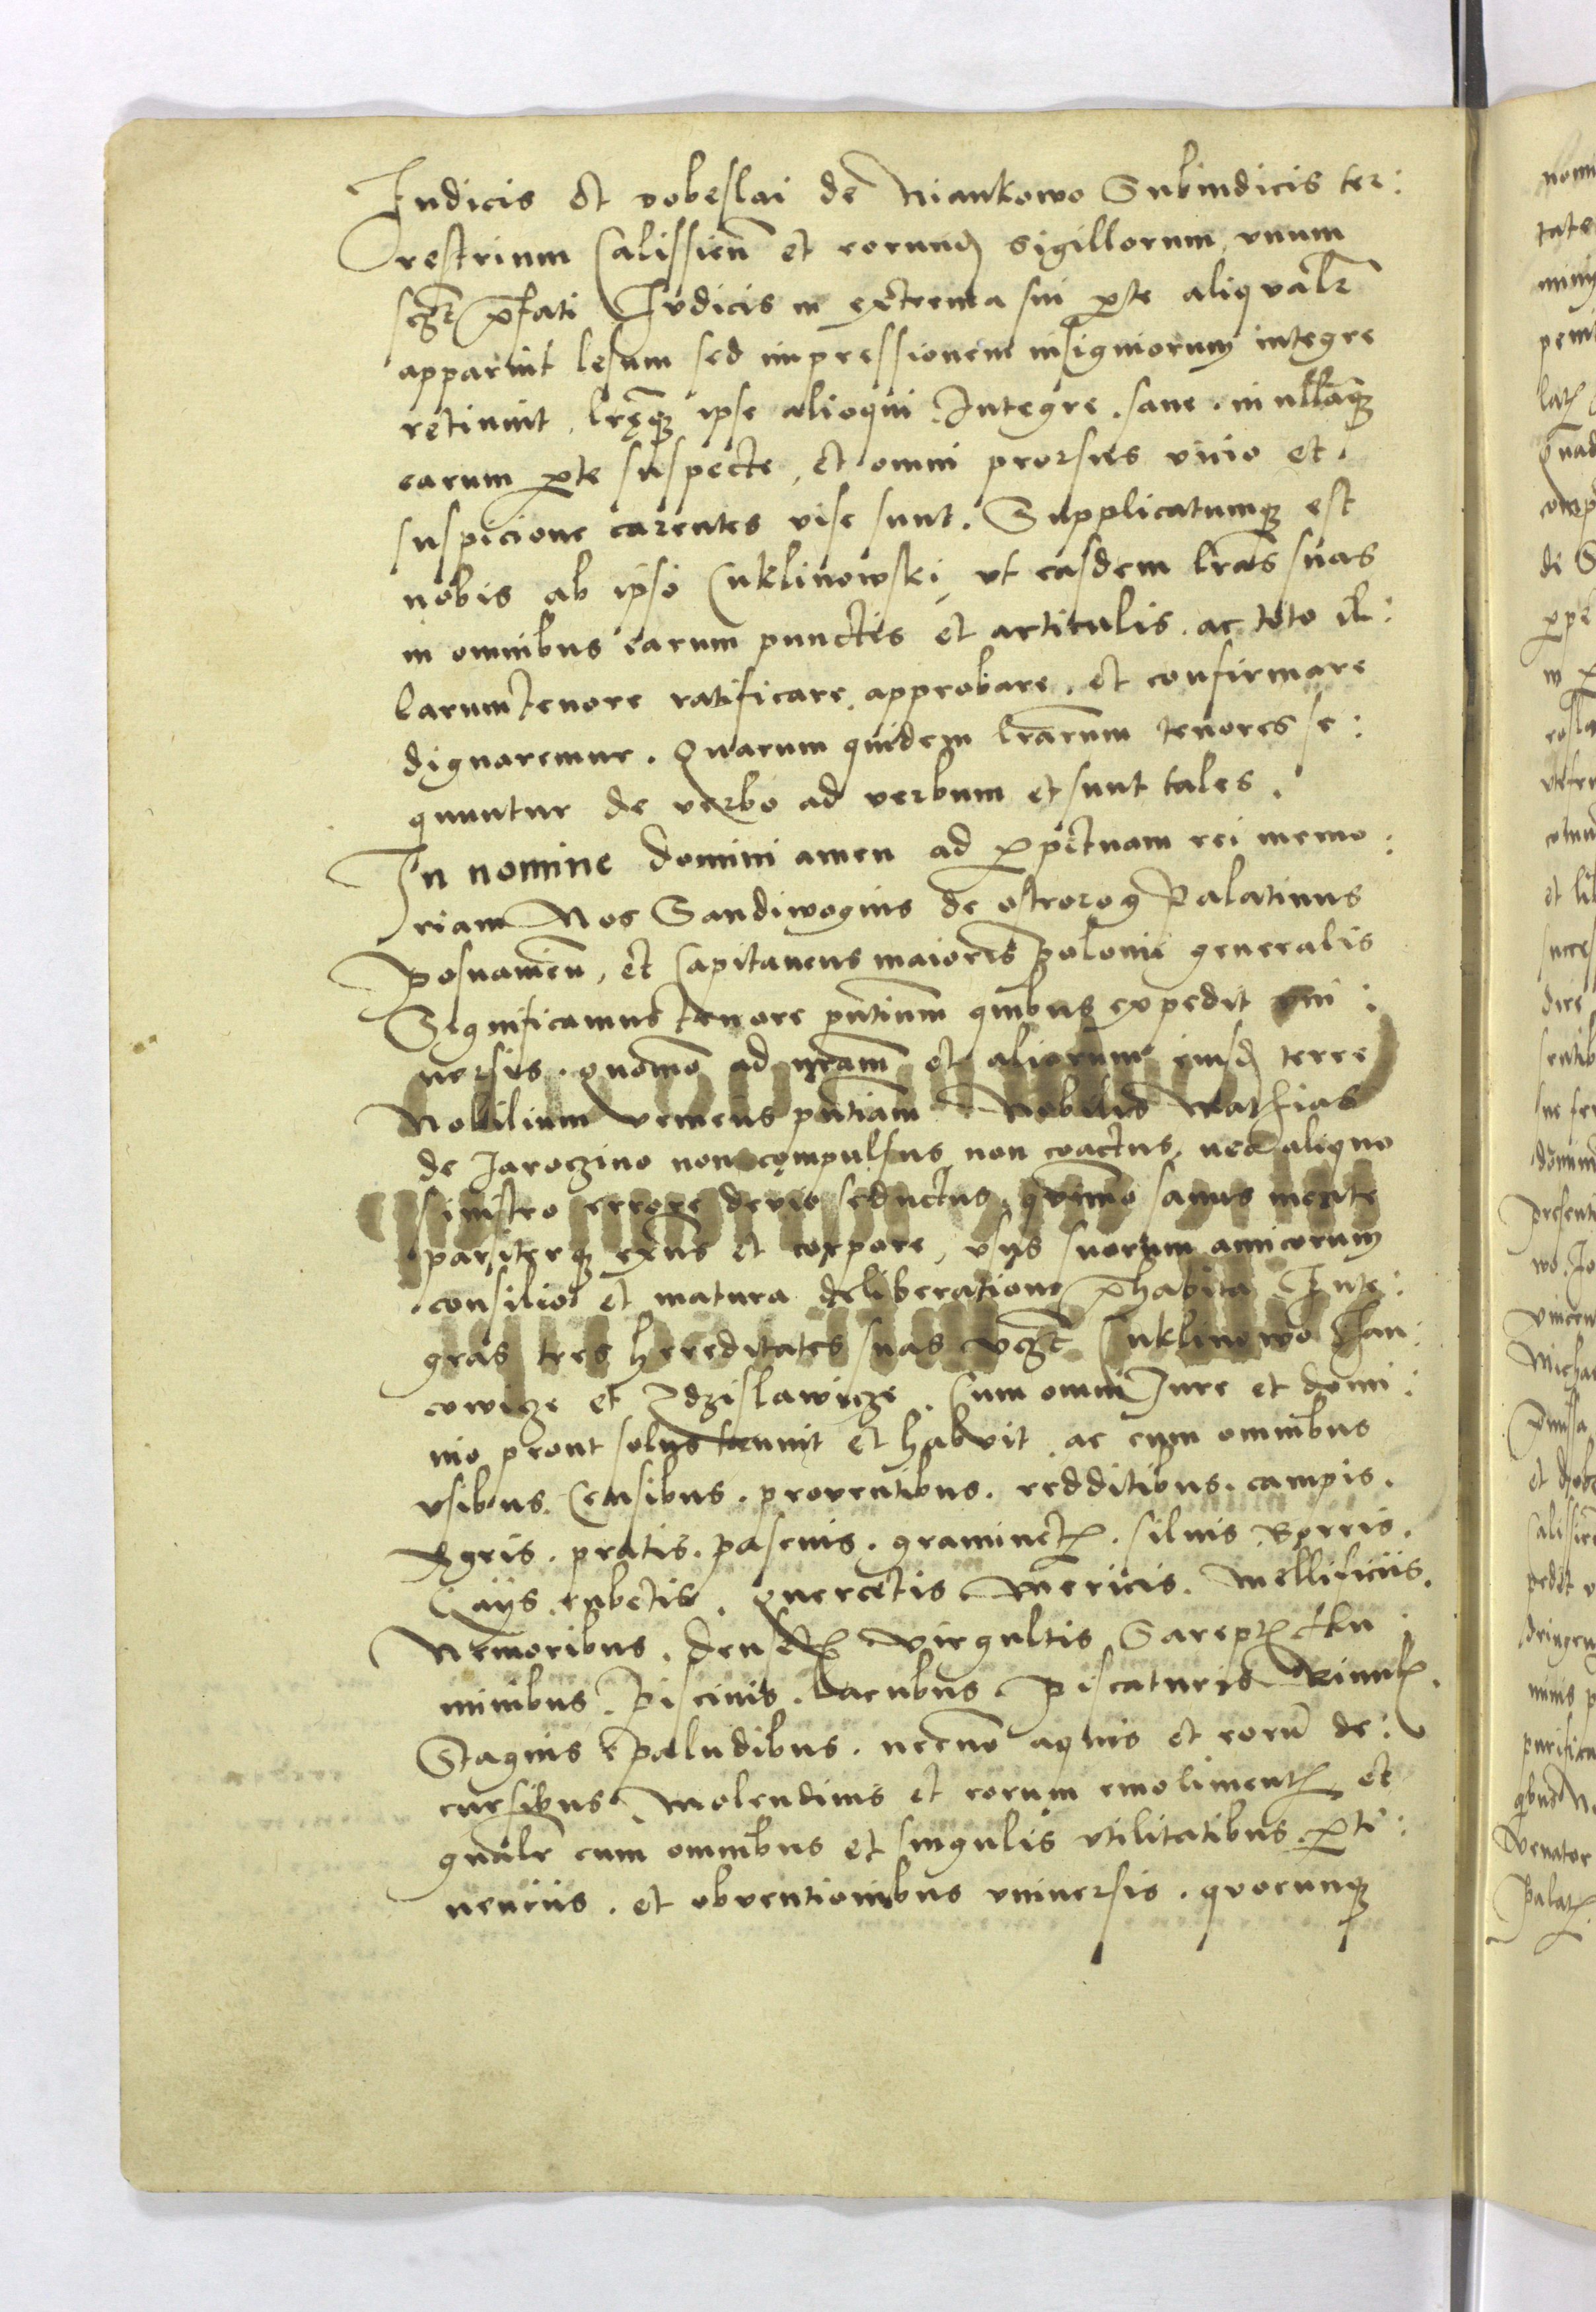 Iudicis et dobeslai de Niankowo Subiudicis ter:
restrium Calissien̄ et eorund sigillorum, unum
sczt p̄fati Iudicis in extrema sui pte aliqualr̄
apparuit lesum sed impressionem insigniorum integre
retinuit, lrēq ipse alioqui Integre. sane. in nullaq
earum pte suspecte, et omni prorsus vicio et.
suspicione carentes vise sunt. Supplicatumq est
nobis ab ipso Cuklinowski, ut easdem lrās suas
in omnibus earum punctis et articulis. ac toto il:
larum tenore ratificare, approbare, et confirmare
dignaremur. Quarum quidem lrārum tenores se:
quuntur de verbo ad verbum et sunt tales.
In nomine domini amen ad ppetuam rei memo:
riam Nos Sandiwogius de ostrorog Palatinus
Posnanien̄, et Capitaneus maioris polonie generalis
Significamus tenore pn̄tium quibus expedit vni:
uersis. quomō ad nr̄am et aliorum eiusd terre
Nobilium veniens pn̄tiam Nobilis Mathias
de Iaroczino non compulsus, non coactus, nec aliquo
sinistro errore devio seductus, quimō sanus mente
pariterq exn̄s et corpore, vsus suorum amicorum
consilio et matura deliberatione p̄habita Inte:
gras tres hereditates suas vczt Cuklinowo Jan:
cowicze et Zdzislawicze. Cum omni Iure et domi:
nio prout solus tenuit et habuit, ac cum omnibus
vsibus. Censibus. proventibus. redditibus. campis.
Agris. pratis. pascuis. graminet. siluis. Borris.
Gays. rubetis. quercetis. Mericis. Mellificiis.
Nemoribus. denset. virgultis Garept flu:
minibus. Piscinis. Lacubus. Piscaturis Riuul.
Stagnis Paludibus. necnō aquis et eorū de:
cursibus. Molendinis et eorum emoliment, et
gnālr̄ cum omnibus et singulis vtilitatibus. pti:
nenciis. et obventionibus vniuersis. quocunq